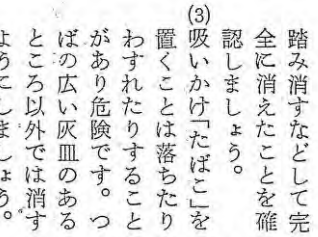 踏み消すなどして完
全に消えたことを確
認しましょう。
(3)吸いかけ「たばこ」を
置くことは落ちたり
わすれたりすること
があり危険です。つ
ばの広い灰皿のある
ところ以外では消す
ようにしましょう。